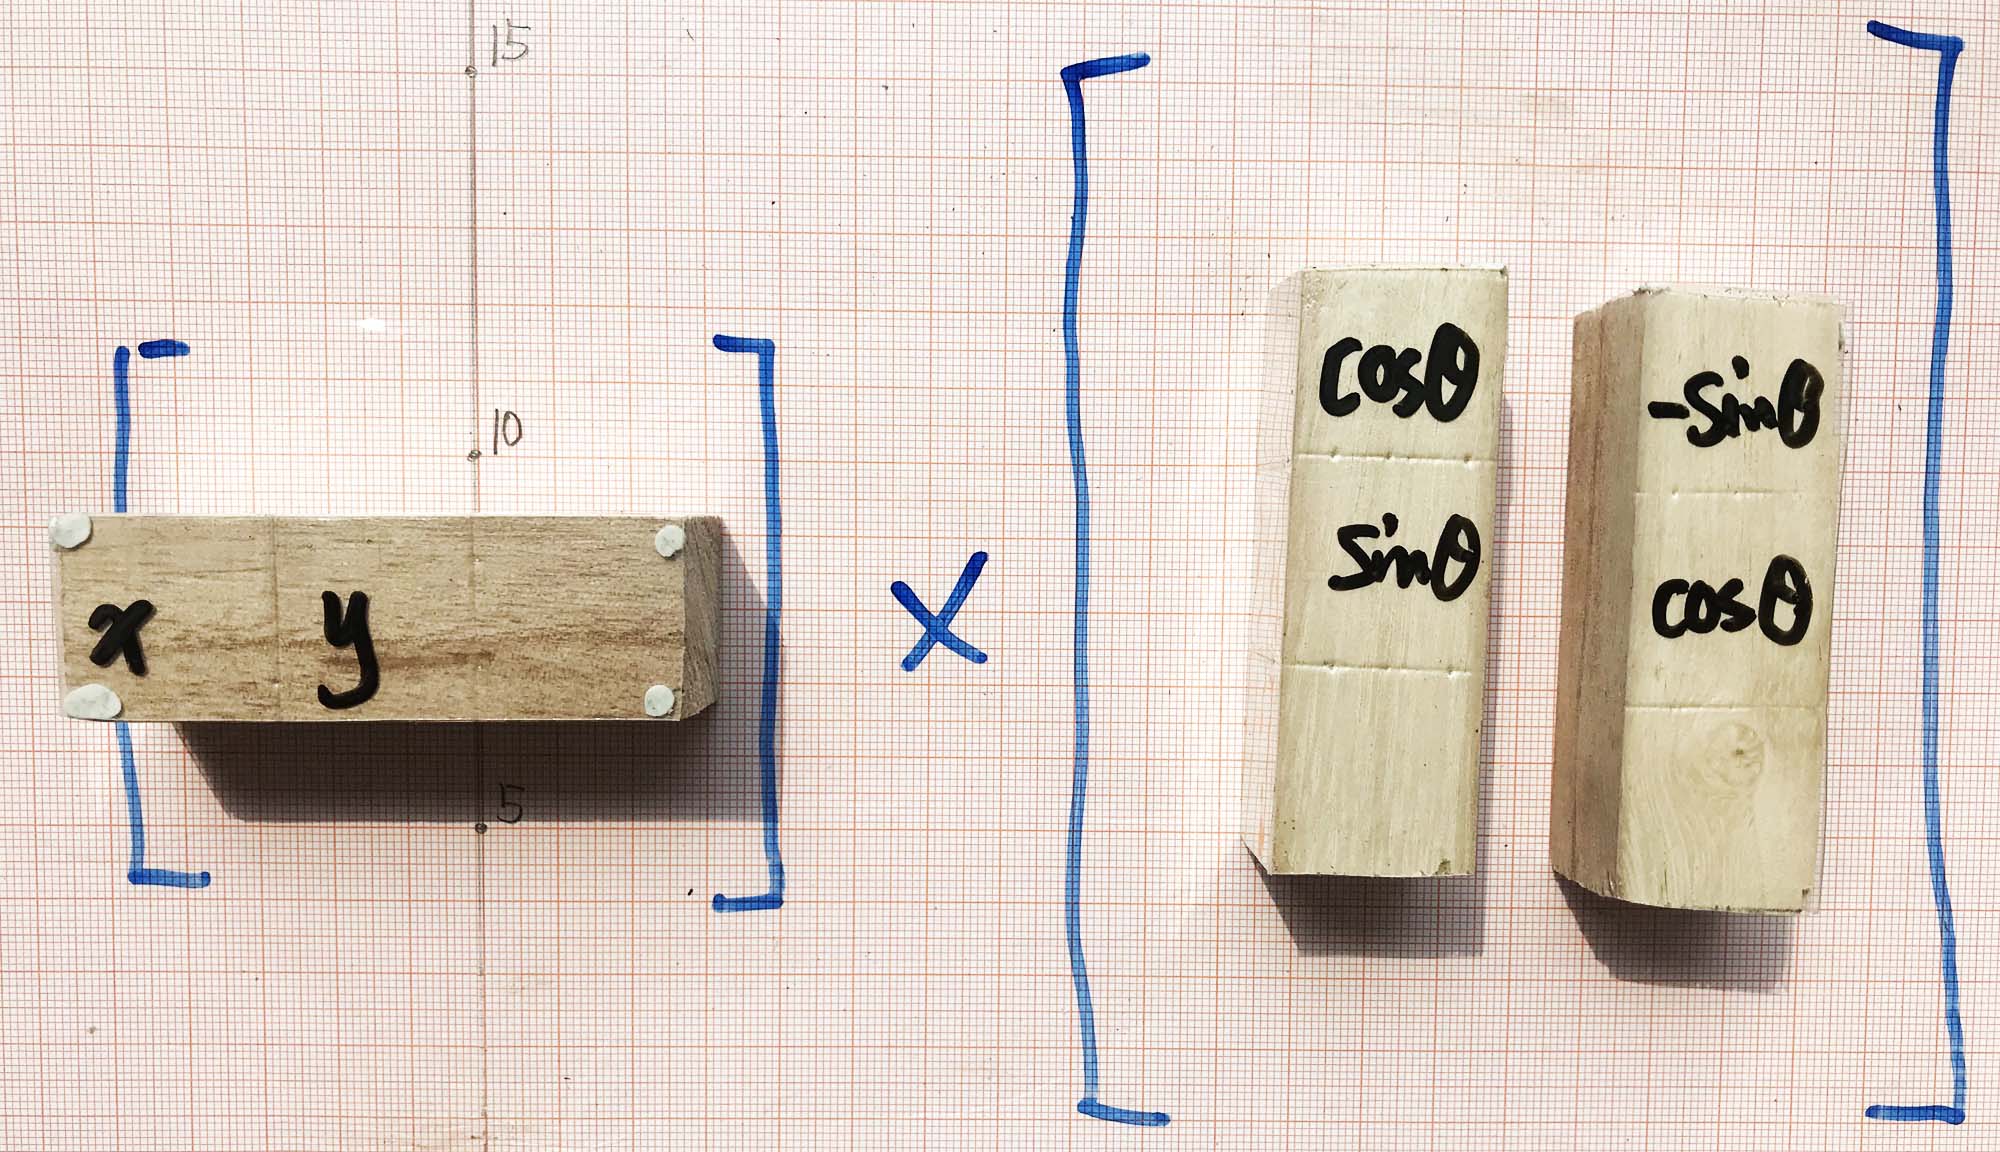 15
10
x y
×
cosθ -sinθ
sinθ cosθ
5